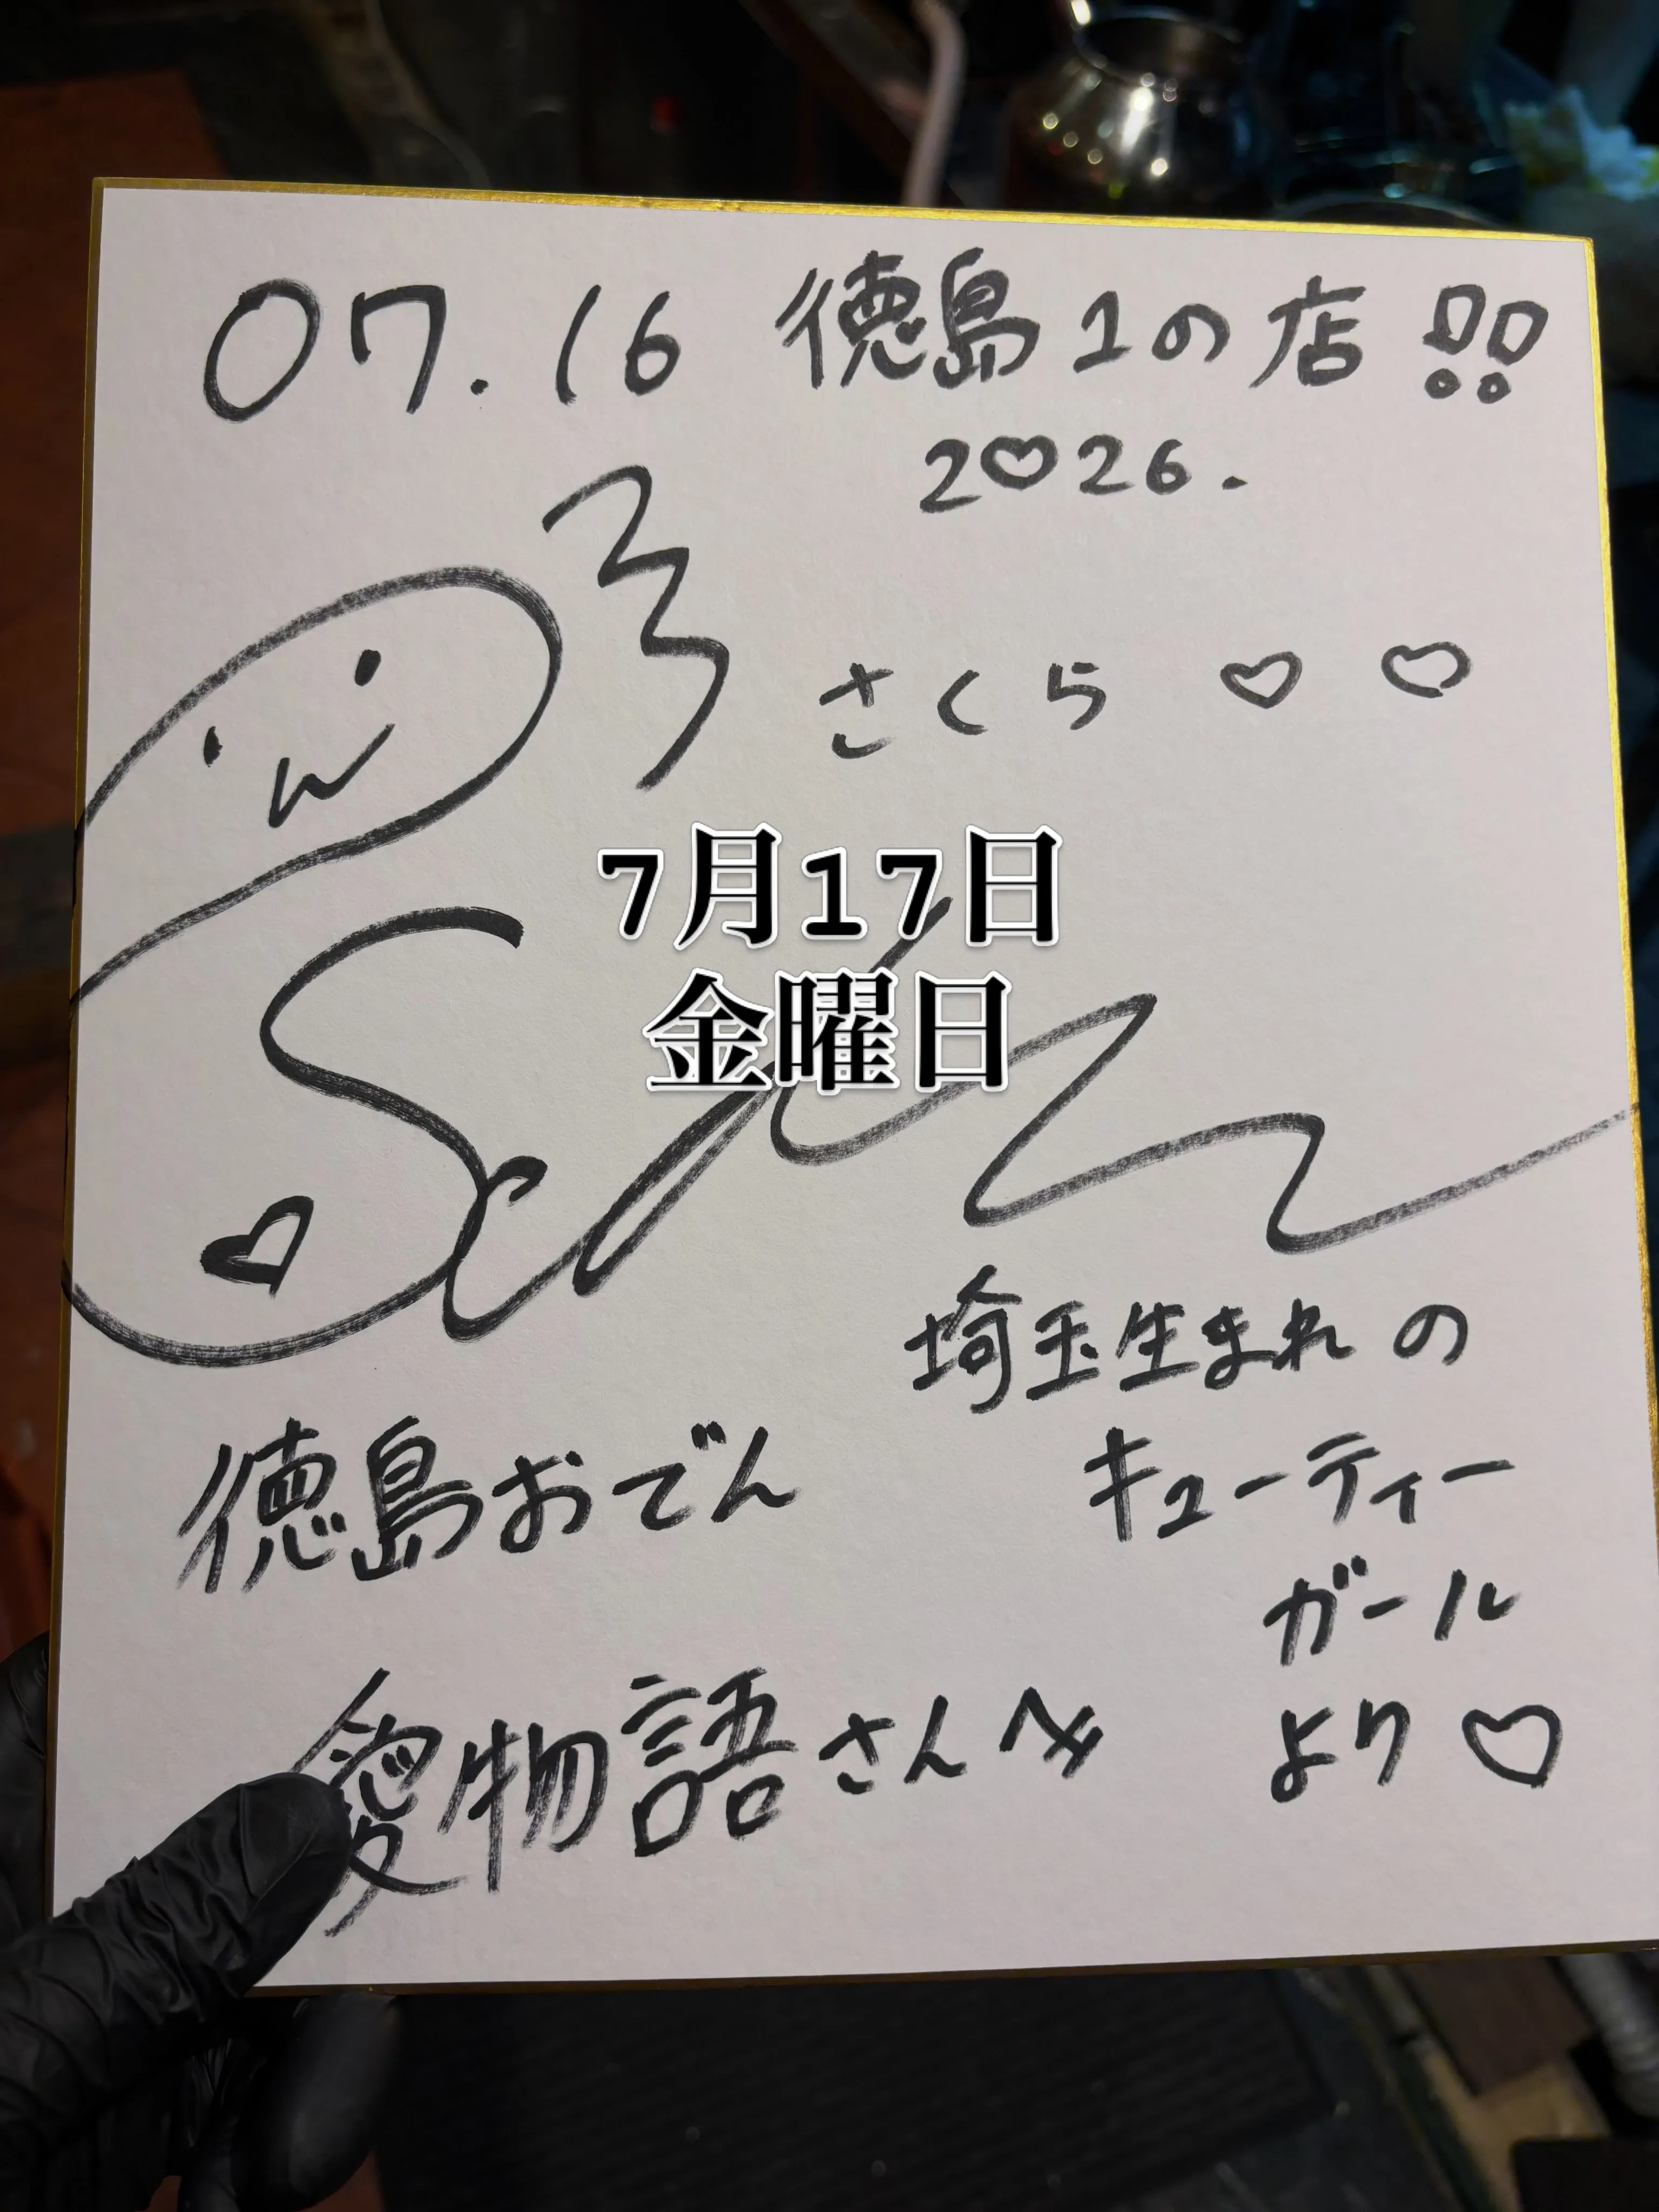 07.16 徳島1の店!!
2♡26.
さくら ♡ ♡
7月17日
金曜日
埼玉生まれの
キューティー
ガール
より♡
徳島おでん
愛物語さんへ